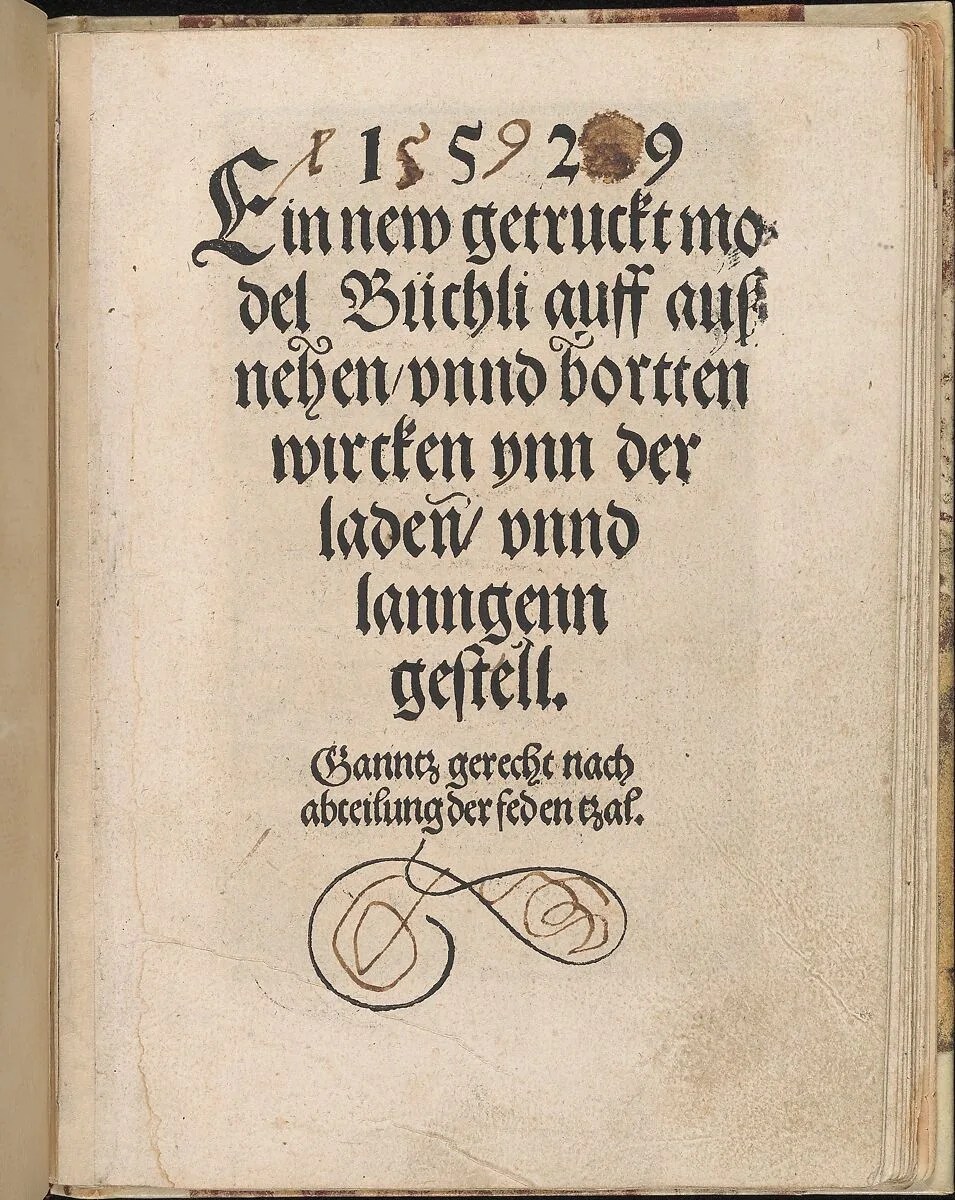 1 5 2 9
Ein new getruckt mo
del Büchli auff auß
nehen/ vnnd bortten
wircken ynn der
ladeñ/ vnnd
lanngenn
gestell.
Ganntz gerecht nach
abteilung der feden tzal.